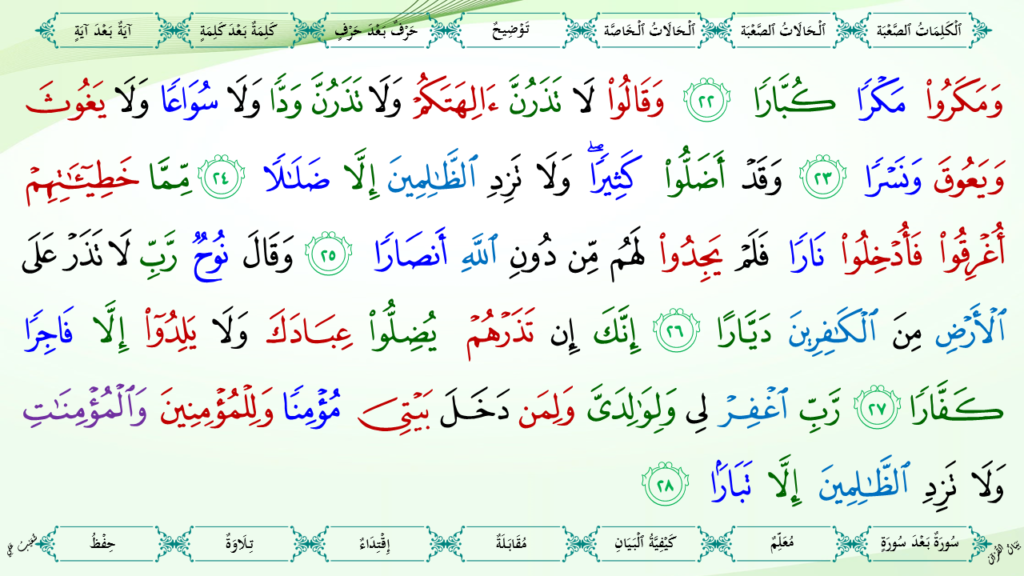 ٱلْكَلِمَاتُ ٱلصَّعْبَة ٱلْحَالَاتُ ٱلصَّعْبَة ٱلْحَالَاتُ ٱلْخَاصَّة تَوْضِيحٌ حَرْفٌ بَعْدَ حَرْفٍ كَلِمَةٌ بَعْدَ كَلِمَةٍ آيَةٌ بَعْدَ آيَةٍ
وَمَكَرُوا۟ مَكْرًا كُبَّارًا ٢٢ وَقَالُوا۟ لَا تَذَرُنَّ ءَالِهَتَكُمْ وَلَا تَذَرُنَّ وَدًّا وَلَا سُوَاعًا وَلَا يَغُوثَ
وَيَعُوقَ وَنَسْرًا ٢٣ وَقَدْ أَضَلُّوا۟ كَثِيرًاۖ وَلَا تَزِدِ ٱلظَّـٰلِمِينَ إِلَّا ضَلَـٰلًا ٢٤ مِّمَّا خَطِيٓـَٔـٰتِهِمْ
أُغْرِقُوا۟ فَأُدْخِلُوا۟ نَارًا فَلَمْ يَجِدُوا۟ لَهُم مِّن دُونِ ٱللَّهِ أَنصَارًا ٢٥ وَقَالَ نُوحٌ رَّبِّ لَا تَذَرْ عَلَى
ٱلْأَرْضِ مِنَ ٱلْكَـٰفِرِينَ دَيَّارًا ٢٦ إِنَّكَ إِن تَذَرْهُمْ يُضِلُّوا۟ عِبَادَكَ وَلَا يَلِدُوٓا۟ إِلَّا فَاجِرًا
كَفَّارًا ٢٧ رَّبِّ ٱغْفِرْ لِى وَلِوَٰلِدَىَّ وَلِمَن دَخَلَ بَيْتِىَ مُؤْمِنًا وَلِلْمُؤْمِنِينَ وَٱلْمُؤْمِنَـٰتِ
وَلَا تَزِدِ ٱلظَّـٰلِمِينَ إِلَّا تَبَارًۢا ٢٨
بَيَانُ القُرْآن سُورَةٌ بَعْدَ سُورَةٍ مُعَلِّمٌ كَيْفِيَّةُ ٱلْبَيَانِ مُقَابَلَةٌ إِقْتِدَاءٌ تِلَاوَةٌ حِفْظٌ